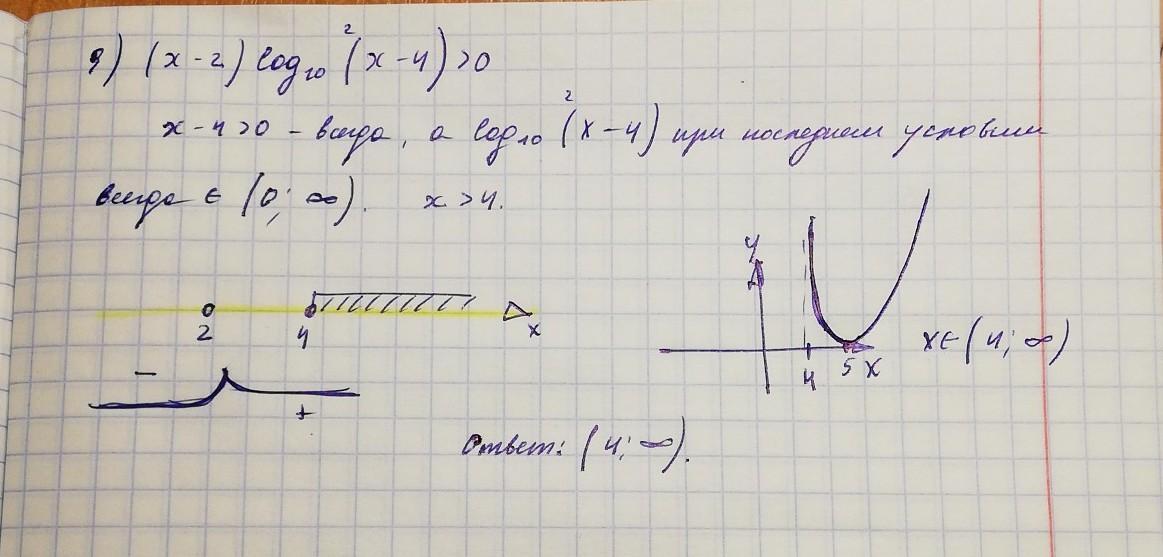 9) (x-2) log₁₀²(x-4)>0
x-4>0 - всегда, а log₁₀²(x-4) при последнем условии
всегда ∈ (0; ∞). x>4.
2 4 x
- +
y
4 5 x
x∈(4; ∞)
Ответ: (4; ∞).